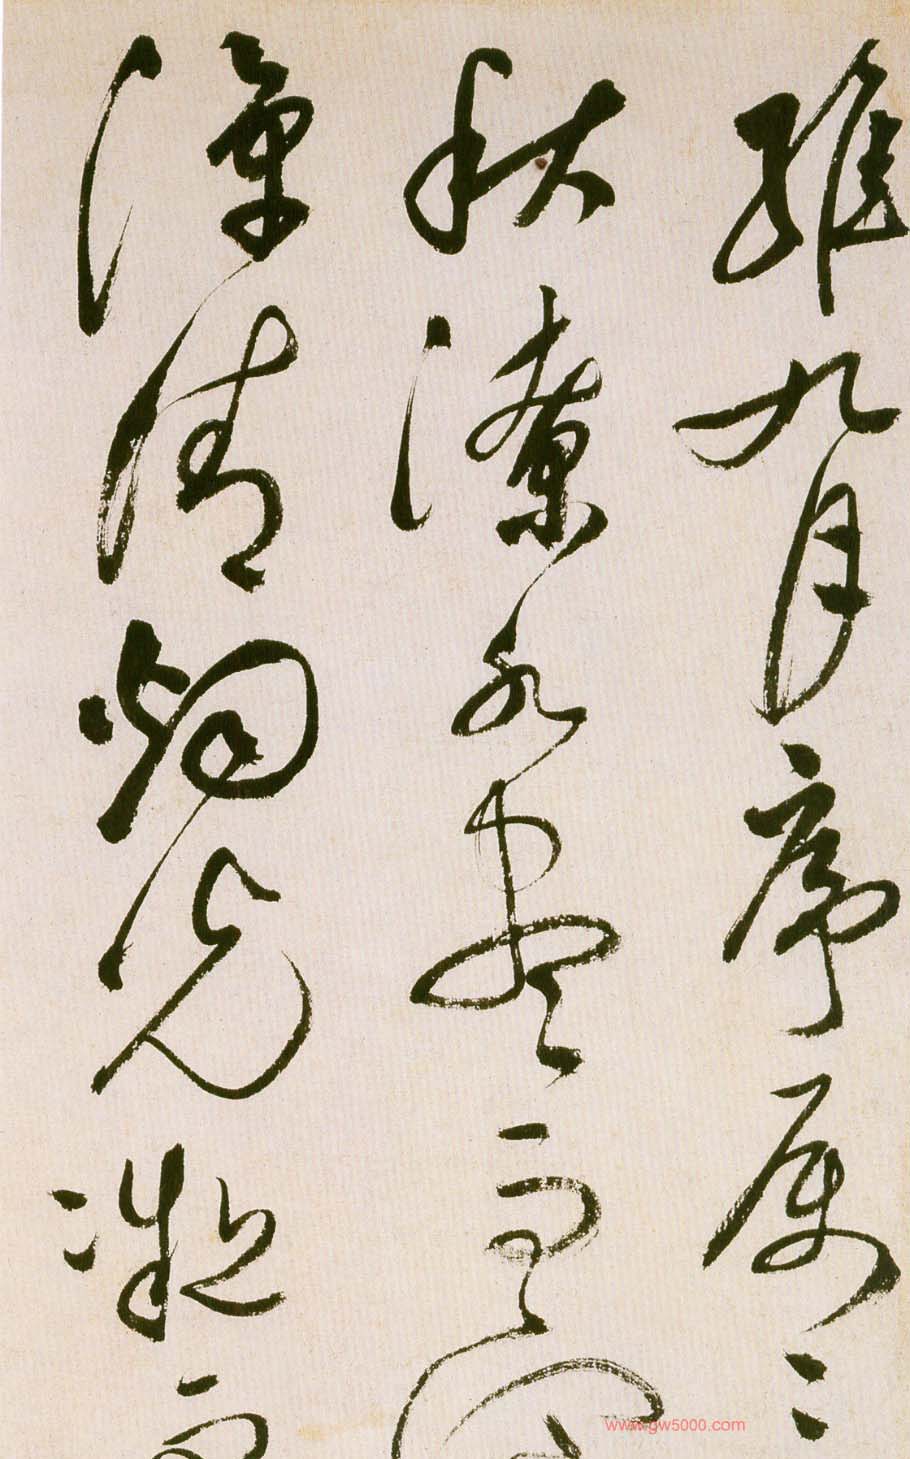 維九月序属三
秋潦水盡而
潭清烟光凝而
www.gw5000.com